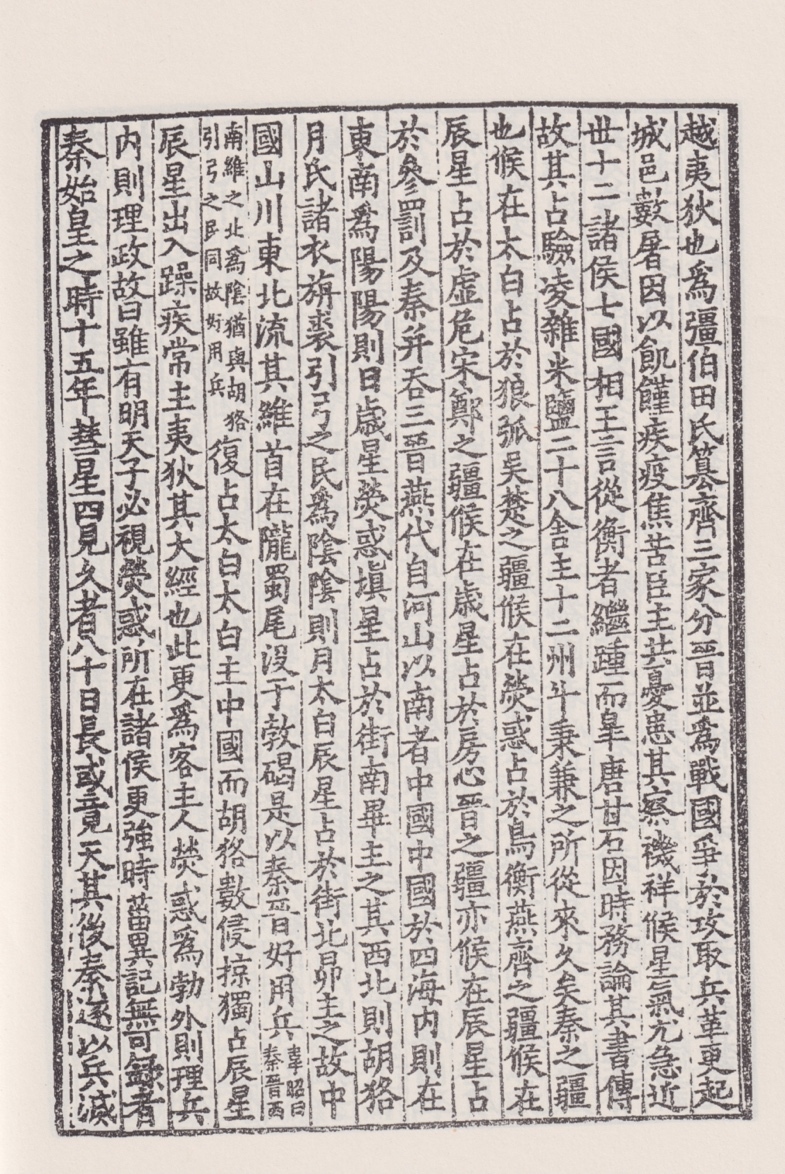 越夷狄也爲彊伯田氏篡齊三家分晉並爲戰國爭於攻取兵革更起
城邑數屠因以飢饉疾疫焦苦臣主共憂患其察禨祥候星氣尤急近
世十二諸侯七國相王言從衡者繼踵而皐唐甘石因時務論其書傳
故其占驗凌雜米鹽二十八舍主十二州斗秉兼之所從來久矣秦之疆
也候在太白占於狼弧吳楚之疆候在熒惑占於鳥衡燕齊之疆候在
辰星占於虛危宋鄭之疆候在歲星占於房心晉之疆亦候在辰星占
於參罰及秦并吞三晉燕代自河山以南者中國中國於四海内則在
東南爲陽陽則日歲星熒惑塡星占於街南畢主之其西北則胡狢
月氏諸衣旃裘引弓之民爲陰陰則月太白辰星占於街北昴主之故中
國山川東北流其維首在隴蜀尾没于敦碣是以秦晉好用兵韋昭曰秦晉西
南維之北爲陰猶與胡狢引弓之民同故好用兵復占太白太白主中國而胡狢數侵掠獨占辰星
辰星出入躁疾常主夷狄其大經也此更爲客主人熒惑爲勃外則理兵
内則理政故曰雖有明天子必視熒惑所在諸侯更強時菑異記無可録者
秦始皇之時十五年彗星四見久者八十日長或竟天其後秦遂以兵滅